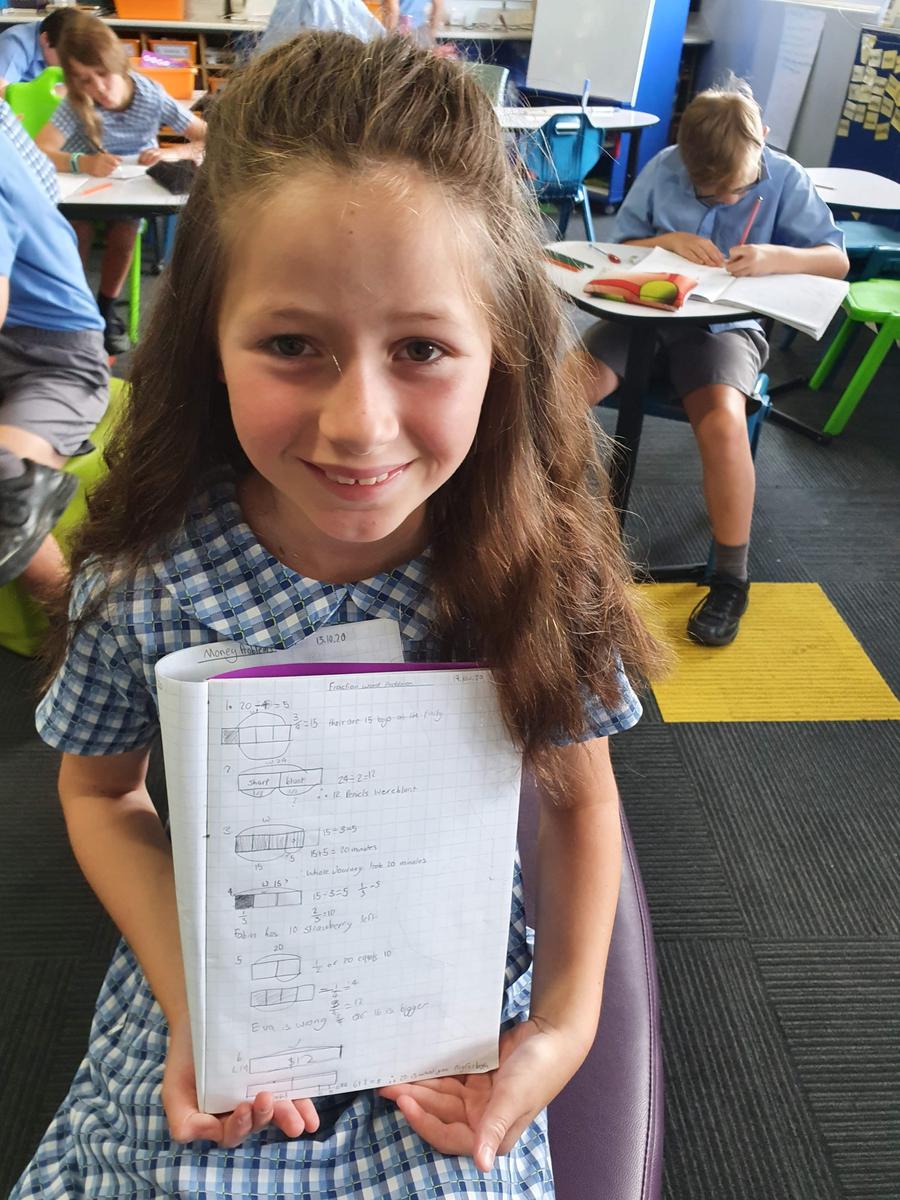 Money Problem 15.10.20
Fraction word Problem
1. 20 ÷ 4 = 5
3/4 = 15 their are 15 boys on the
2.
24
short blunt
24÷2=12
∴ 12 Pencils were blunt
?
3.
15÷3=5
15+5 = 20 minutes
15 5
whole Journey took 20 minutes
4.
15÷3=5 1/3=5
1/3
2/3=10
has 10 strawberry left.
5
20
1/2 of 20 equals 10
= 1/4=4
= 12
Eva is wrong of 16 is bigger
6
$12